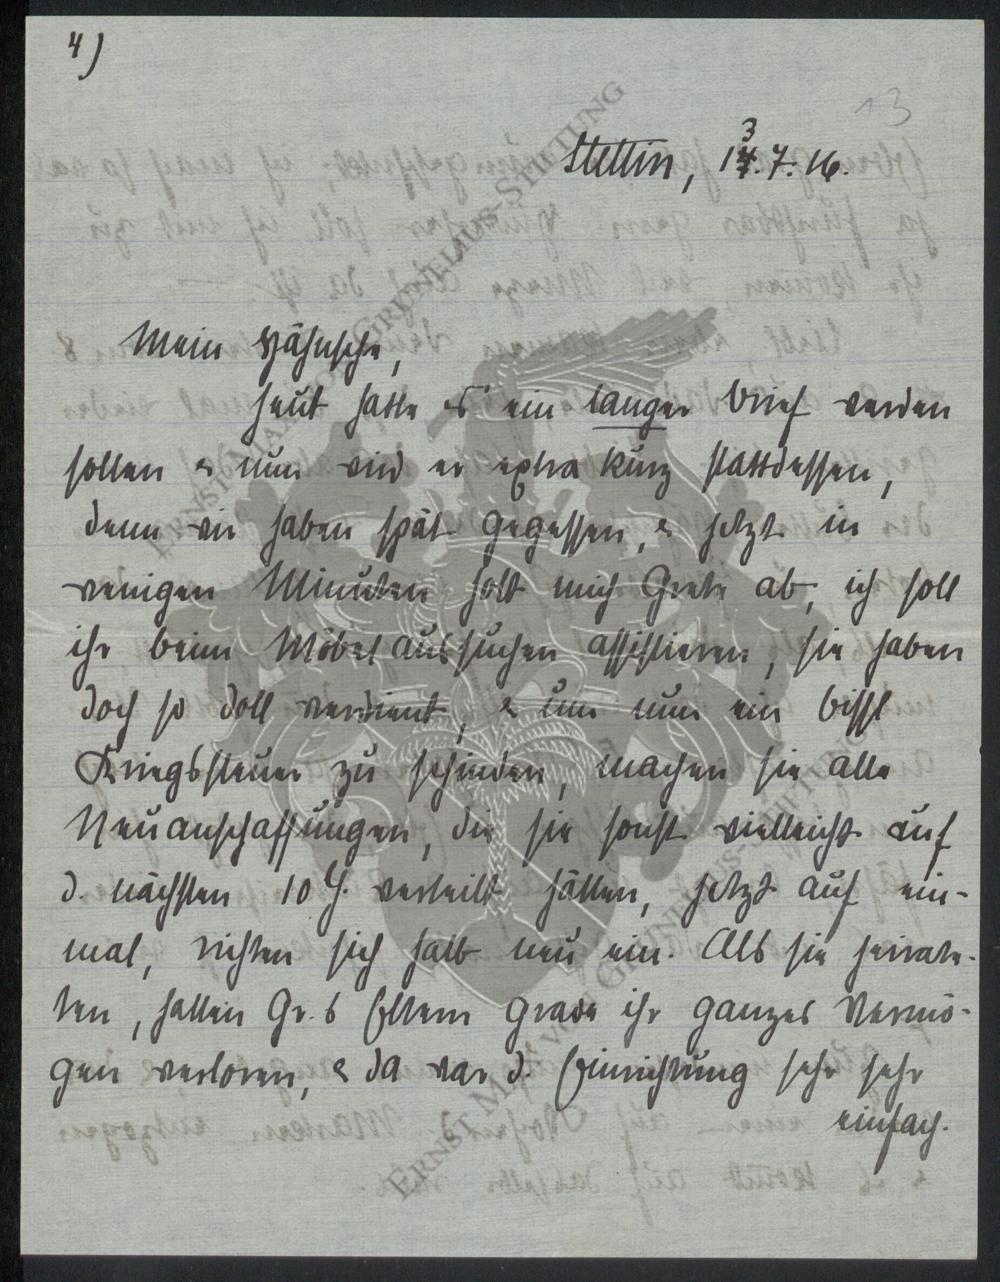 4)
13
Stettin, 13.7.16.
Mein Hähnsche,
heut hatte es ein langer Brief werden
sollen & nun wird er extra kurz stattdessen,
denn wir haben spät gegessen, & jetzt in
wenigen Minuten holt mich Grete ab, ich soll
ihr beim Möbelaussuchen assistieren, sie haben
doch so doll verdient, & um nun ein bissl
Kriegssteuer zu schinden, machen sie alle
Neuanschaffungen, die sie sonst vielleicht auf
d. nächsten 10 J. verteilt hätten, jetzt auf ein-
mal, richten sich halb neu ein. Als sie heirate-
ten, hatten Gr.s Eltern grade ihr ganzes Vermö-
gen verloren, & da war d. Einrichtung sehr sehr
einfach.
ERNST MAX VON GRUNELIUS-STIFTUNG
ERNST MAX VON GRUNELIUS-STIFTUNG